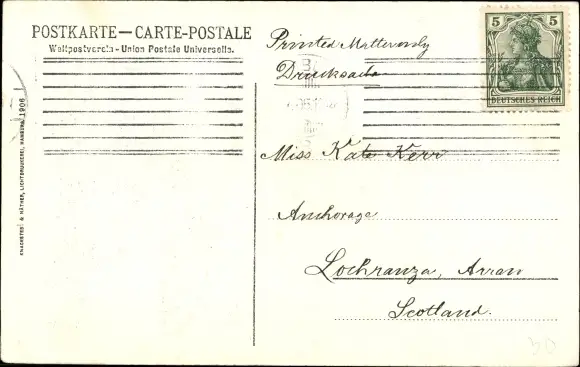 POSTKARTE — CARTE-POSTALE
Weltpostverein - Union Postale Universelle.
Printed Matter only
Drucksache
5 5
DEUTSCHES REICH
Miss Kate Kerr
Anchorage
Lochranza, Arran
Scotland.
KNACKSTEDT & NÄTHER, LICHTDRUCKEREI, HAMBURG 1906
50